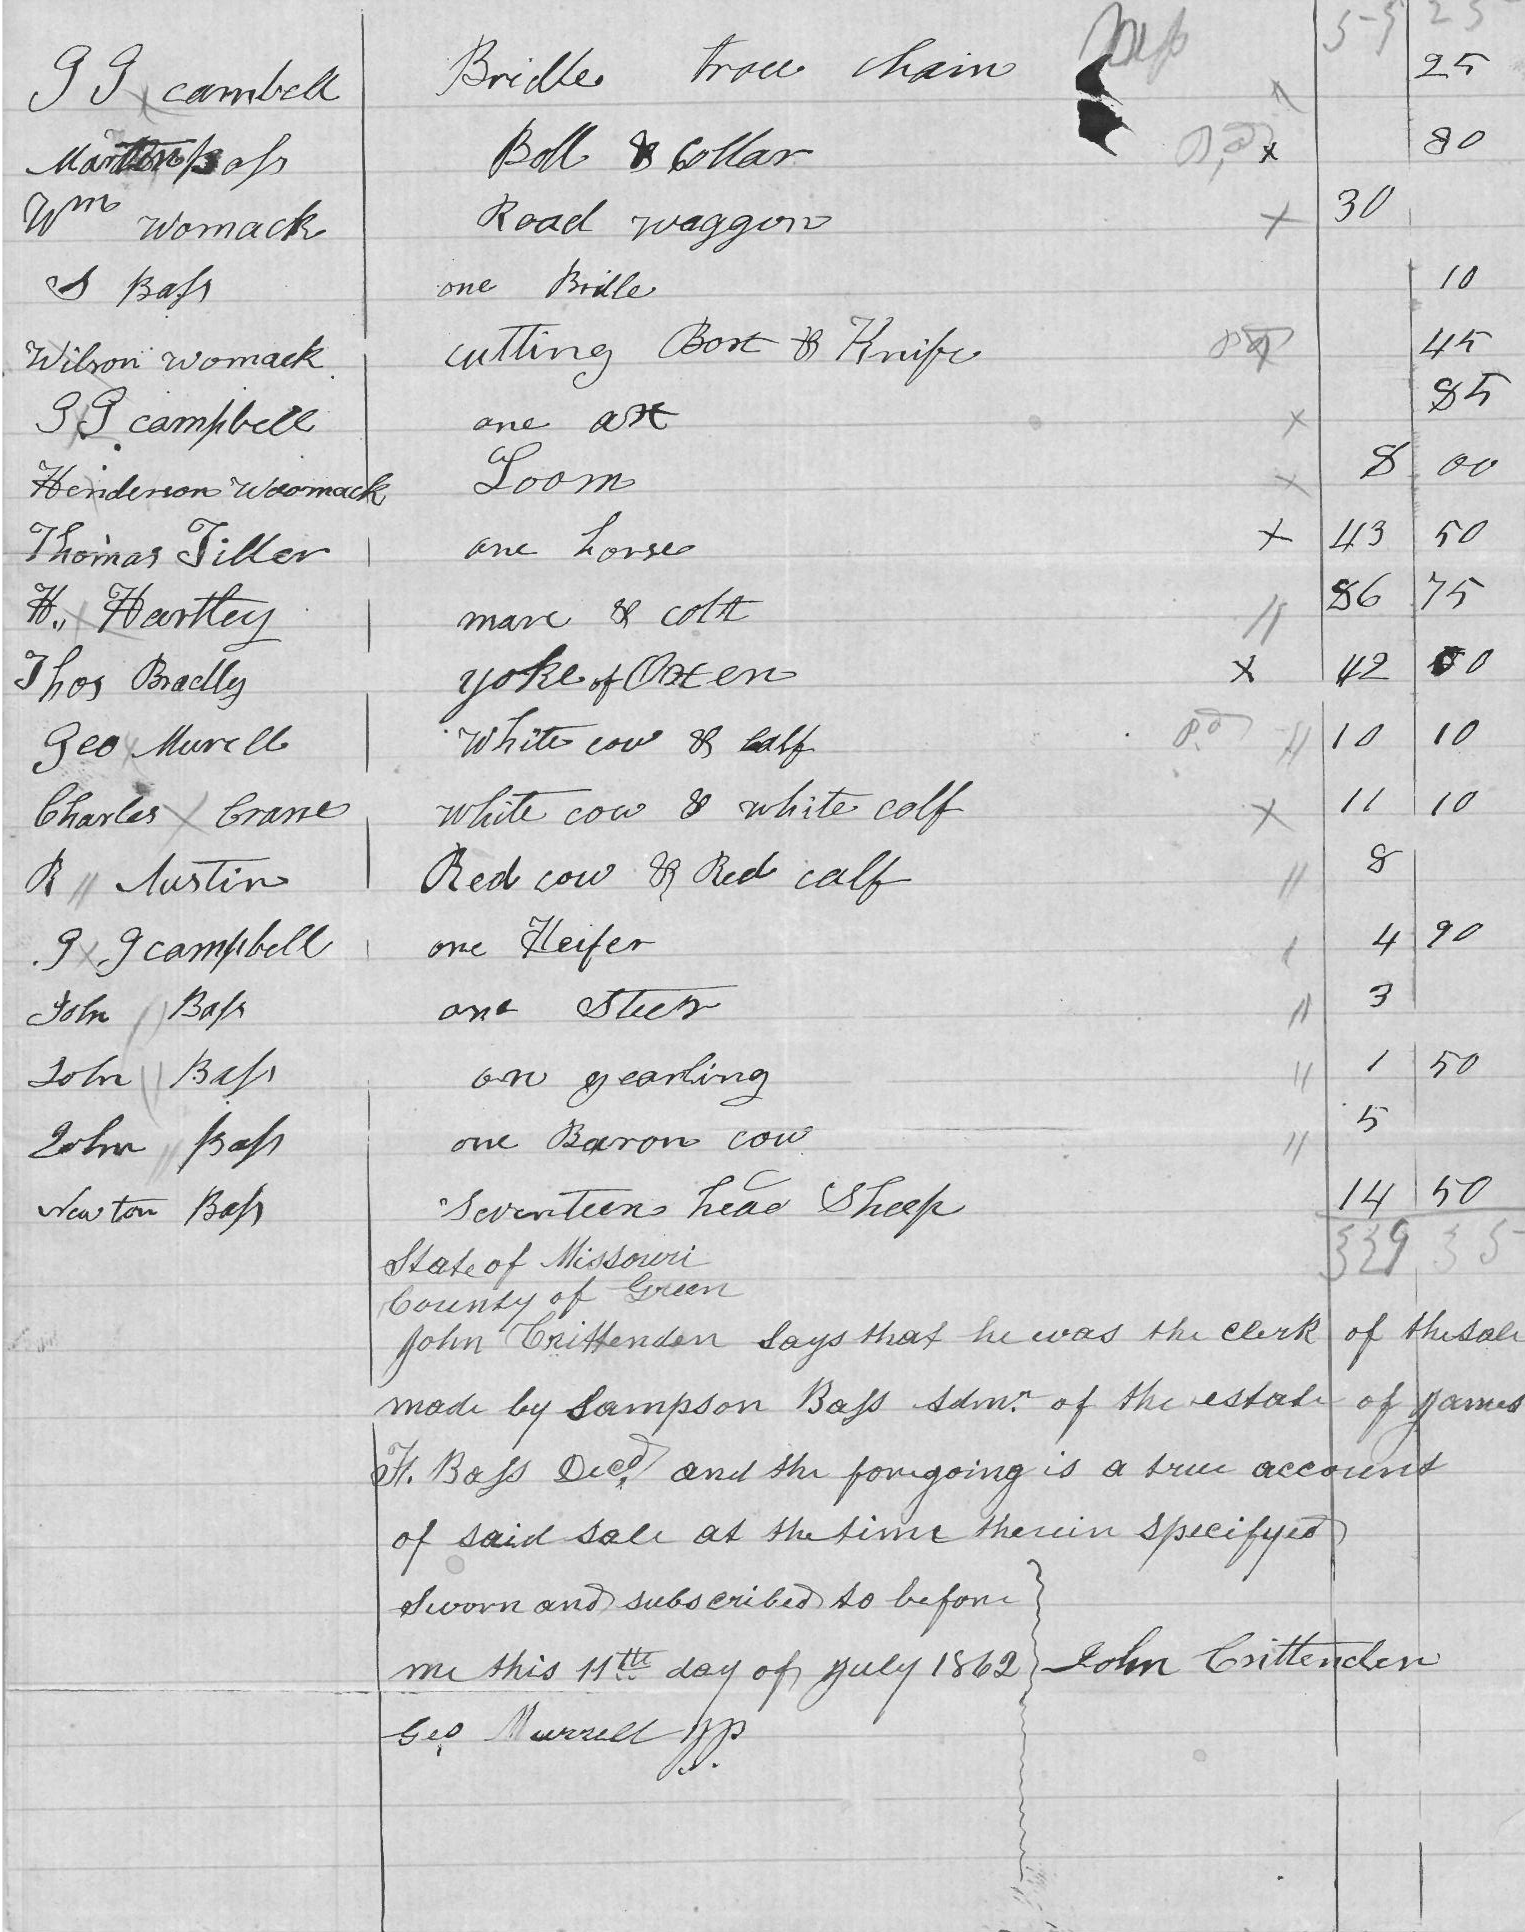 55 25
G G cambell Bridle trace chain 25
Martin Bass Bell & Collar pd x 80
Wm Womack Road waggon x 30
S Bass one Bridle 10
Wilson Womack cutting Box & Knife pd 45
G G campbell one ax x 85
Henderson Woomack Loom x 8 00
Thomas Tiller one horse x 43 50
H. Hartley mare & colt " 86 75
Thos Bradly yoke of Oxen x 42 00
Geo Murell White cow & calf pd " 10 10
Charles x Crane White cow & white calf x 11 10
R " Austin Red cow & Red calf " 8
G x G campbell one Heifer 4 90
John " Bass one Steer " 3
John " Bass on yearling " 1 50
John " Bass one Baron cow " 5
Newton Bass Seventeen head Sheep 14 50
329 35
State of Missouri
County of Green
John Crittenden Says that he was the clerk of the sale
made by Sampson Bass Admr. of the estate of James
H. Bass Decd. and the foregoing is a true account
of said sale at the time therein specifyed
Sworn and subscribed to before
me this 11th day of July 1862 } John Crittenden
Geo Murrell JP.